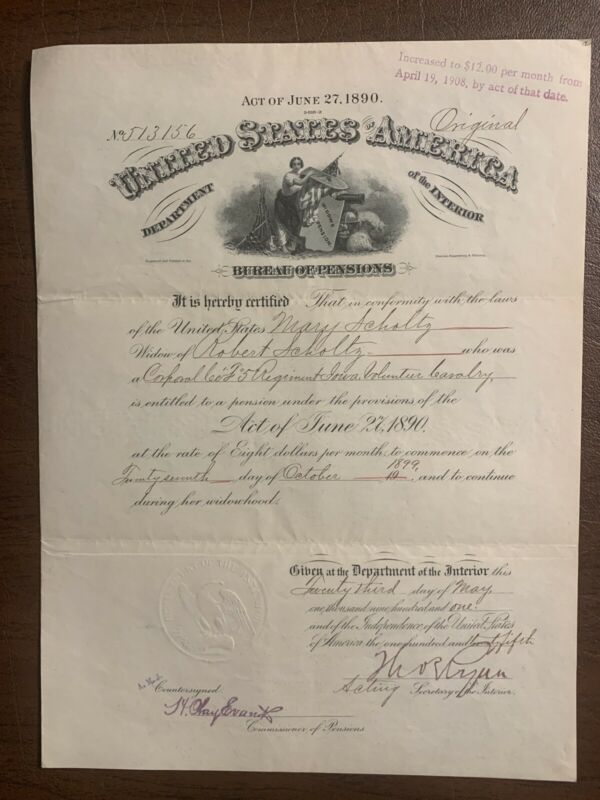 Increased to $12.00 per month from
April 19, 1908, by act of that date.
ACT OF JUNE 27, 1890.
No 513156
Original
UNITED STATES OF AMERICA
DEPARTMENT of the INTERIOR
WIDOW'S PENSION
BUREAU OF PENSIONS
It is hereby certified That in conformity with the laws
of the United States Mary Scholtz
Widow of Robert Scholtz who was
a Corporal Co "F" 5" Regiment Iowa Volunteer Cavalry
is entitled to a pension under the provisions of the
Act of June 27, 1890.
at the rate of Eight dollars per month, to commence on the
Twenty seventh day of October 1899, and to continue
during her widowhood.
Given at the Department of the Interior this
Twenty third day of May
one thousand nine hundred and one
and of the Independence of the United States
of America the one hundred and twenty fifth
Thos Ryan
Acting Secretary of the Interior.
Countersigned,
H. Clay Evans
Commissioner of Pensions